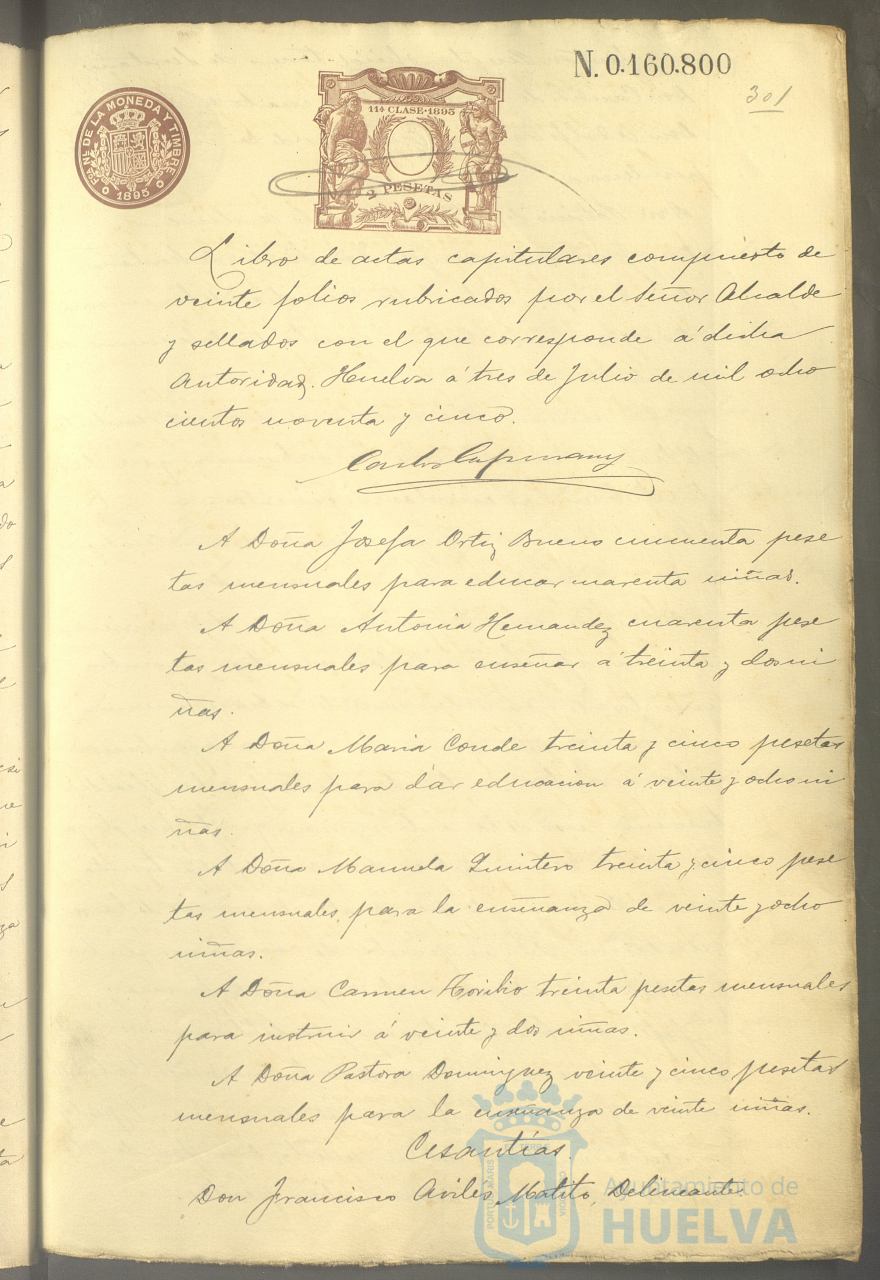 N. 0.160.800
301
Fca. Nl. DE LA MONEDA Y TIMBRE
1895
11ª CLASE·1895
2 PESETAS
Libro de actas capitulares compuesto de
veinte folios rubricados por el Señor Alcalde
y sellados con el que corresponde á dicha
Autoridad. Huelva á tres de Julio de mil ocho
cientos noventa y cinco.
A Doña Josefa Ortiz Bueno cincuenta pese
tas mensuales para educar cuarenta niñas.
A Doña Antonia Hernandez cuarenta pese
tas mensuales para enseñar á treinta y dos ni
ñas.
A Doña Maria Conde treinta y cinco pesetas
mensuales para dar educacion á veinte y ocho ni
ñas.
A Doña Manuela Quintero treinta y cinco pese
tas mensuales para la enseñanza de veinte y ocho
niñas.
A Doña Carmen Toribio treinta pesetas mensuales
para instruir á veinte y dos niñas.
A Doña Pastora Dominguez veinte y cinco pesetas
mensuales para la enseñanza de veinte niñas.
Cesantías
Don Francisco Aviles Matito, Delineante.
Ayuntamiento de
HUELVA